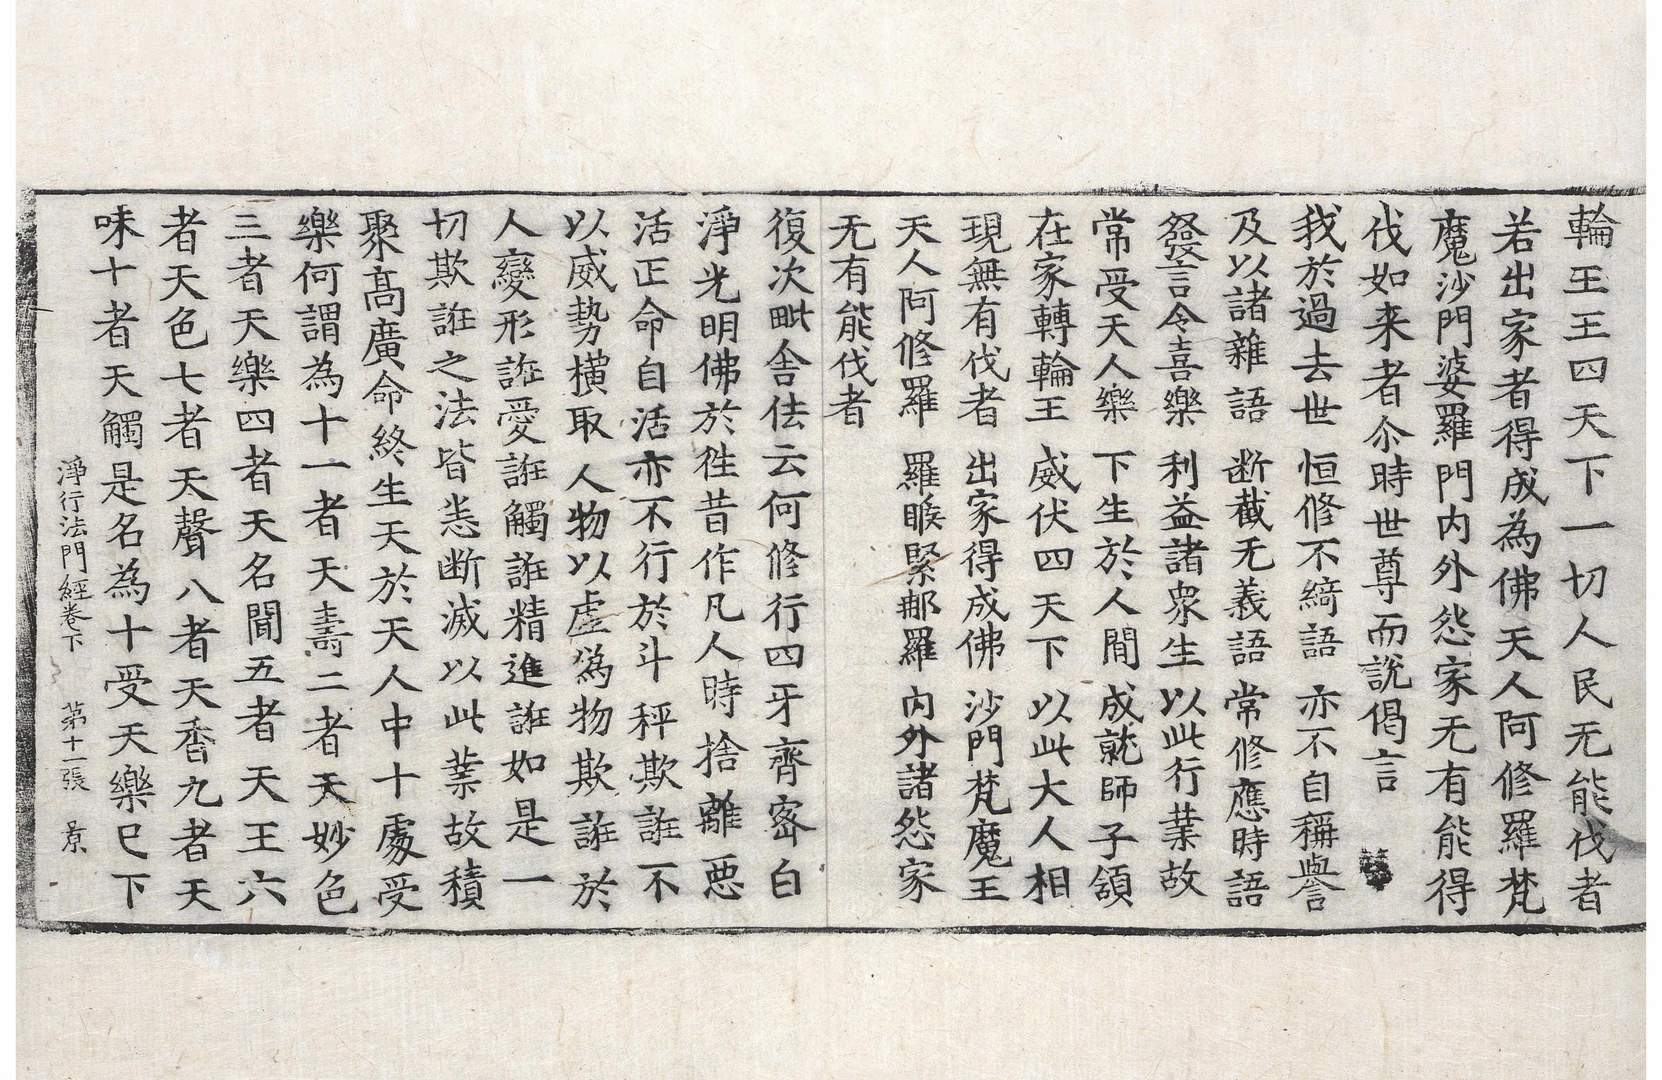 輪王王四天下一切人民无能伐者
若出家者得成為佛天人阿修羅梵
魔沙門婆羅門内外怨家无有能得
伐如来者尒時世尊而說偈言
我於過去世　恒修不綺語　亦不自稱譽
及以諸雜語　断截无義語　常修應時語
發言令喜樂　利益諸衆生　以此行業故
常受天人樂　下生於人間　成就師子頷
在家轉輪王　威伏四天下　以此大人相
現無有伐者　出家得成佛　沙門梵魔王
天人阿修羅　羅睺緊那羅　内外諸怨家
无有能伐者
復次毗舍佉云何修行四牙齊密白
淨光明佛於徃昔作凡人時捨離惡
活正命自活亦不行於斗秤欺誑不
以威勢橫取人物以虛為物欺誑於
人變形誑愛誑觸誑精進誑如是一
切欺誑之法皆悉断滅以此業故積
聚高廣命終生天於天人中十處受
樂何謂為十一者天壽二者天妙色
三者天樂四者天名聞五者天王六
者天色七者天聲八者天香九者天
味十者天觸是名為十受天樂已下
淨行法門經卷下　第十一張　景